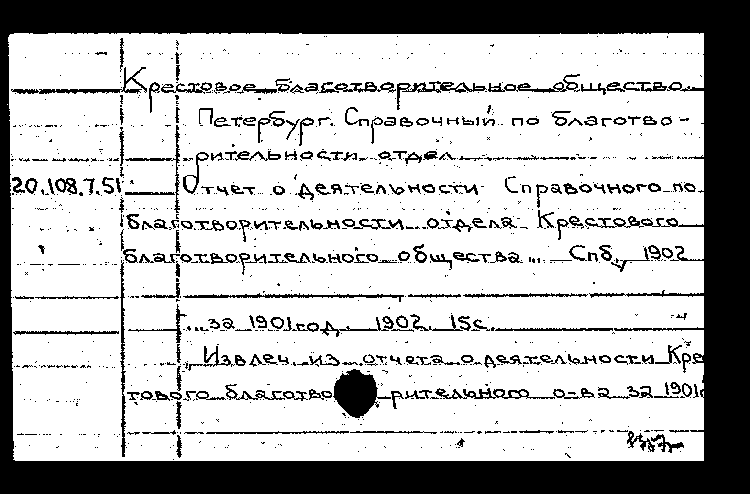 Крестовое благотворительное общество.
Петербург. Справочный по благотво-
рительности отдел.
20.108.7.51 Отчет о деятельности Справочного по
благотворительности отдела Крестового
благотворительного общества... Спб., 1902
...за 1901 год. 1902. 15с.
Извлеч. из отчета о деятельности Кре
тового благотворительного о-ва за 1901г